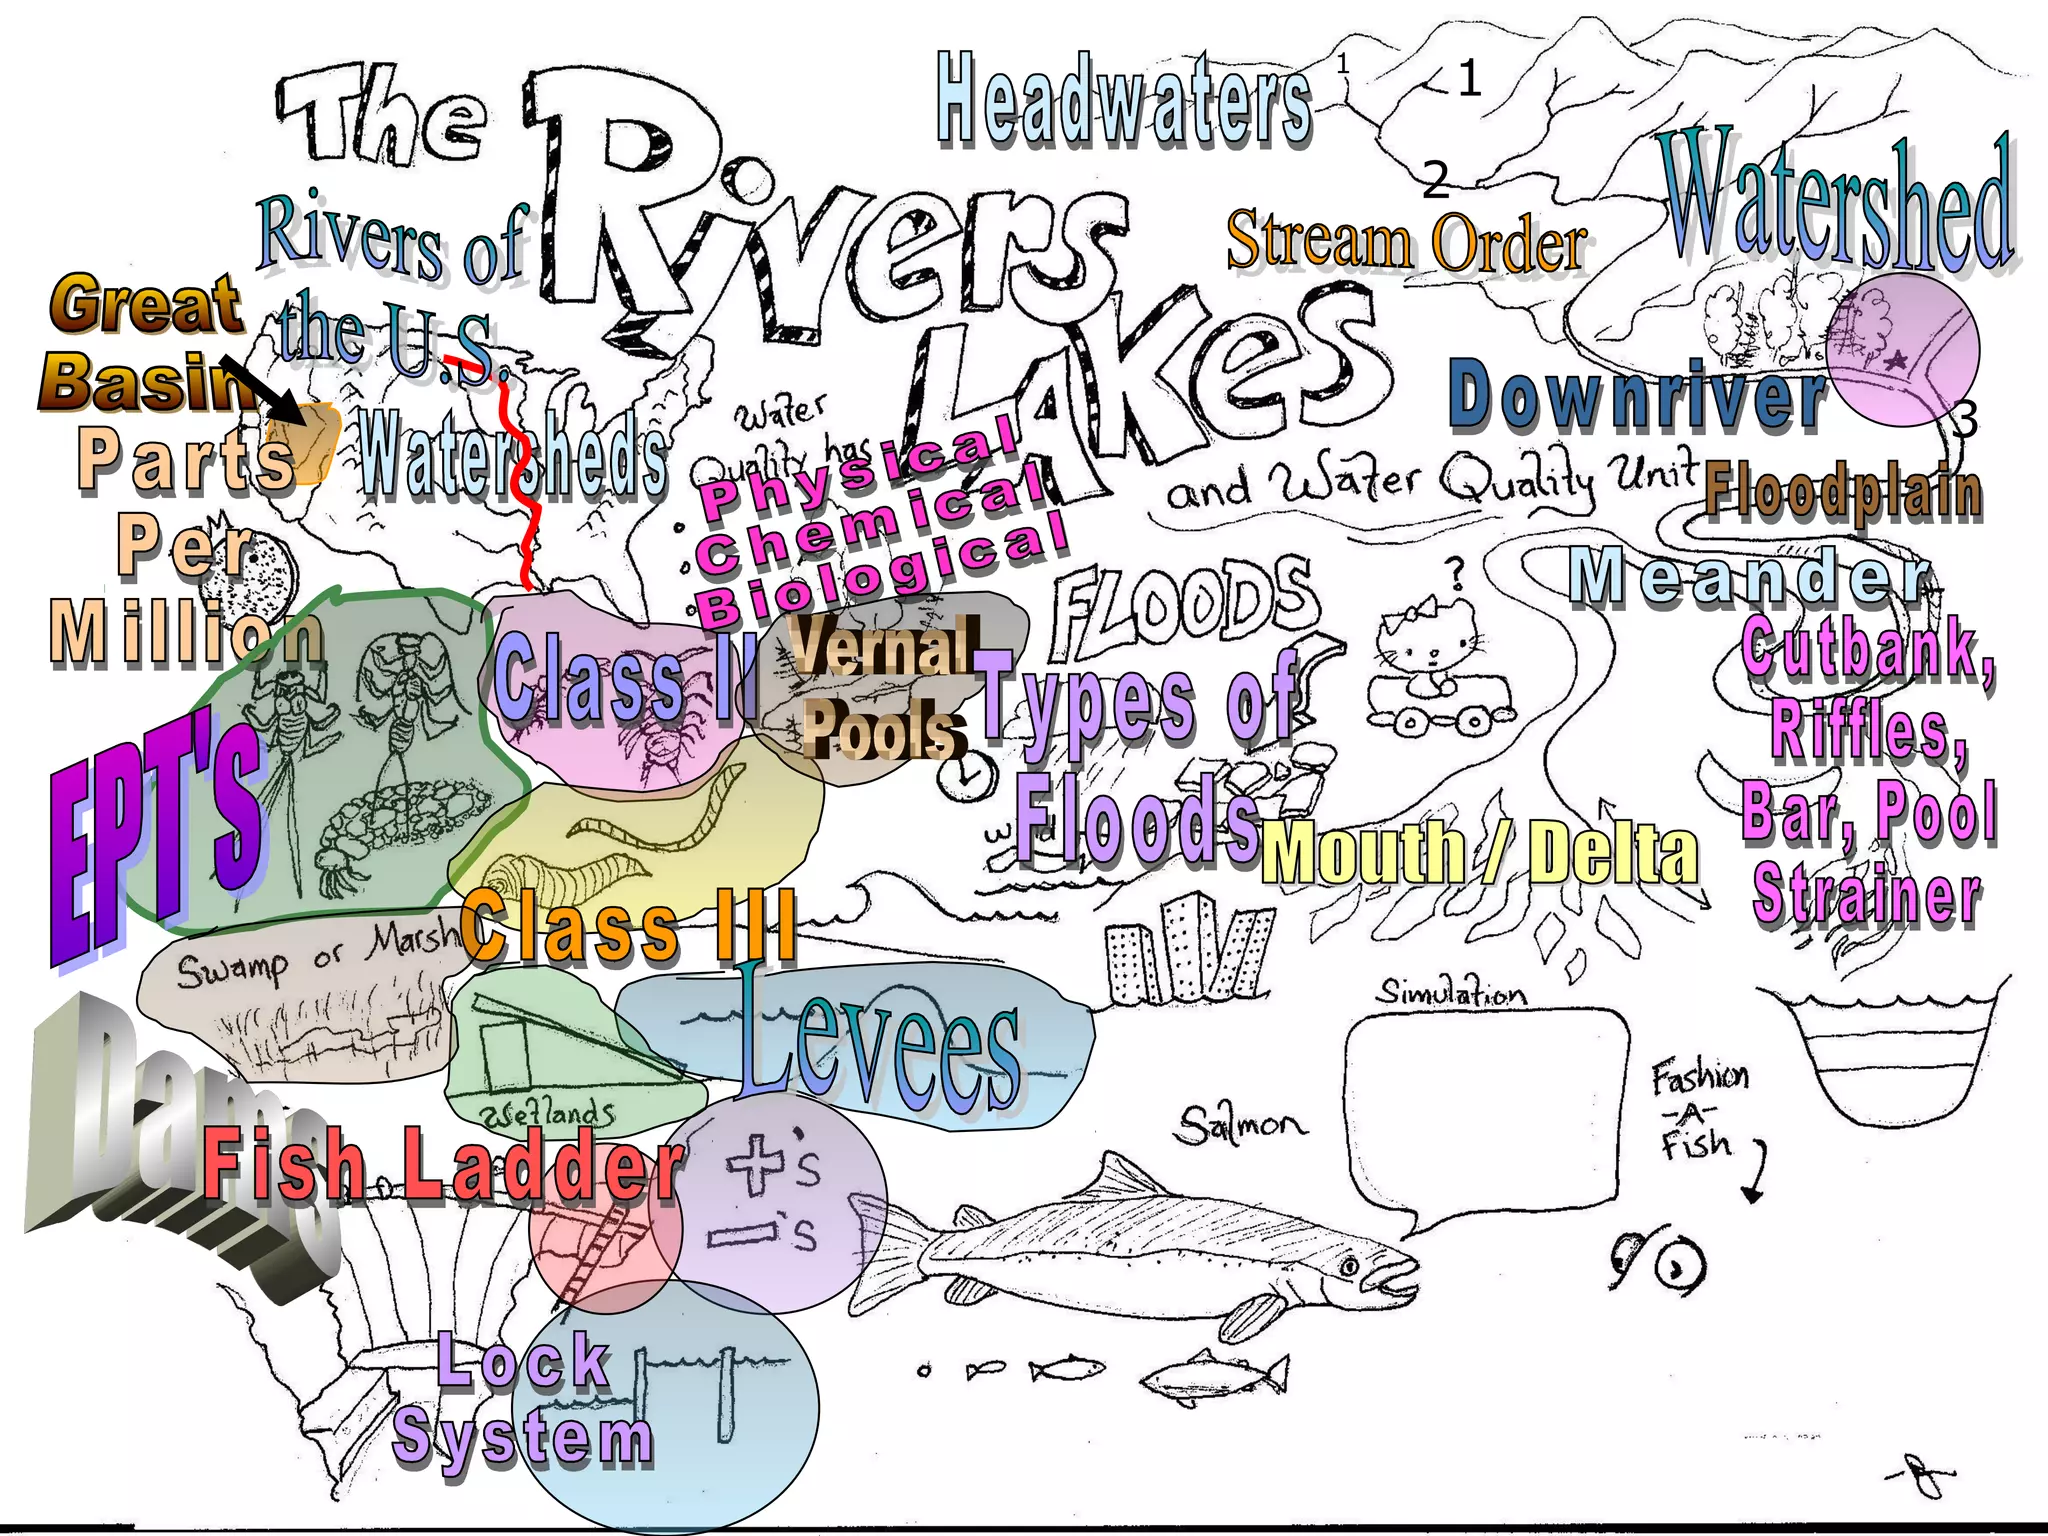 The
Rivers
Lakes
and Water Quality Unit
Headwaters
1
1
2
3
Stream Order
Watershed
Rivers of
the U.S.
Great
Basin
Watersheds
Parts
Per
Million
Water
Quality has
Physical
Chemical
Biological
Downriver
Floodplain
Meander
Cutbank,
Riffles,
Bar, Pool
Strainer
FLOODS
?
Types of
Floods
Mouth / Delta
Vernal
Pools
Class II
EPT's
Class III
Swamp or Marsh
Wetlands
Levees
Dams
Fish Ladder
+'s
-'s
Lock
System
Simulation
Salmon
Fashion
-A-
Fish